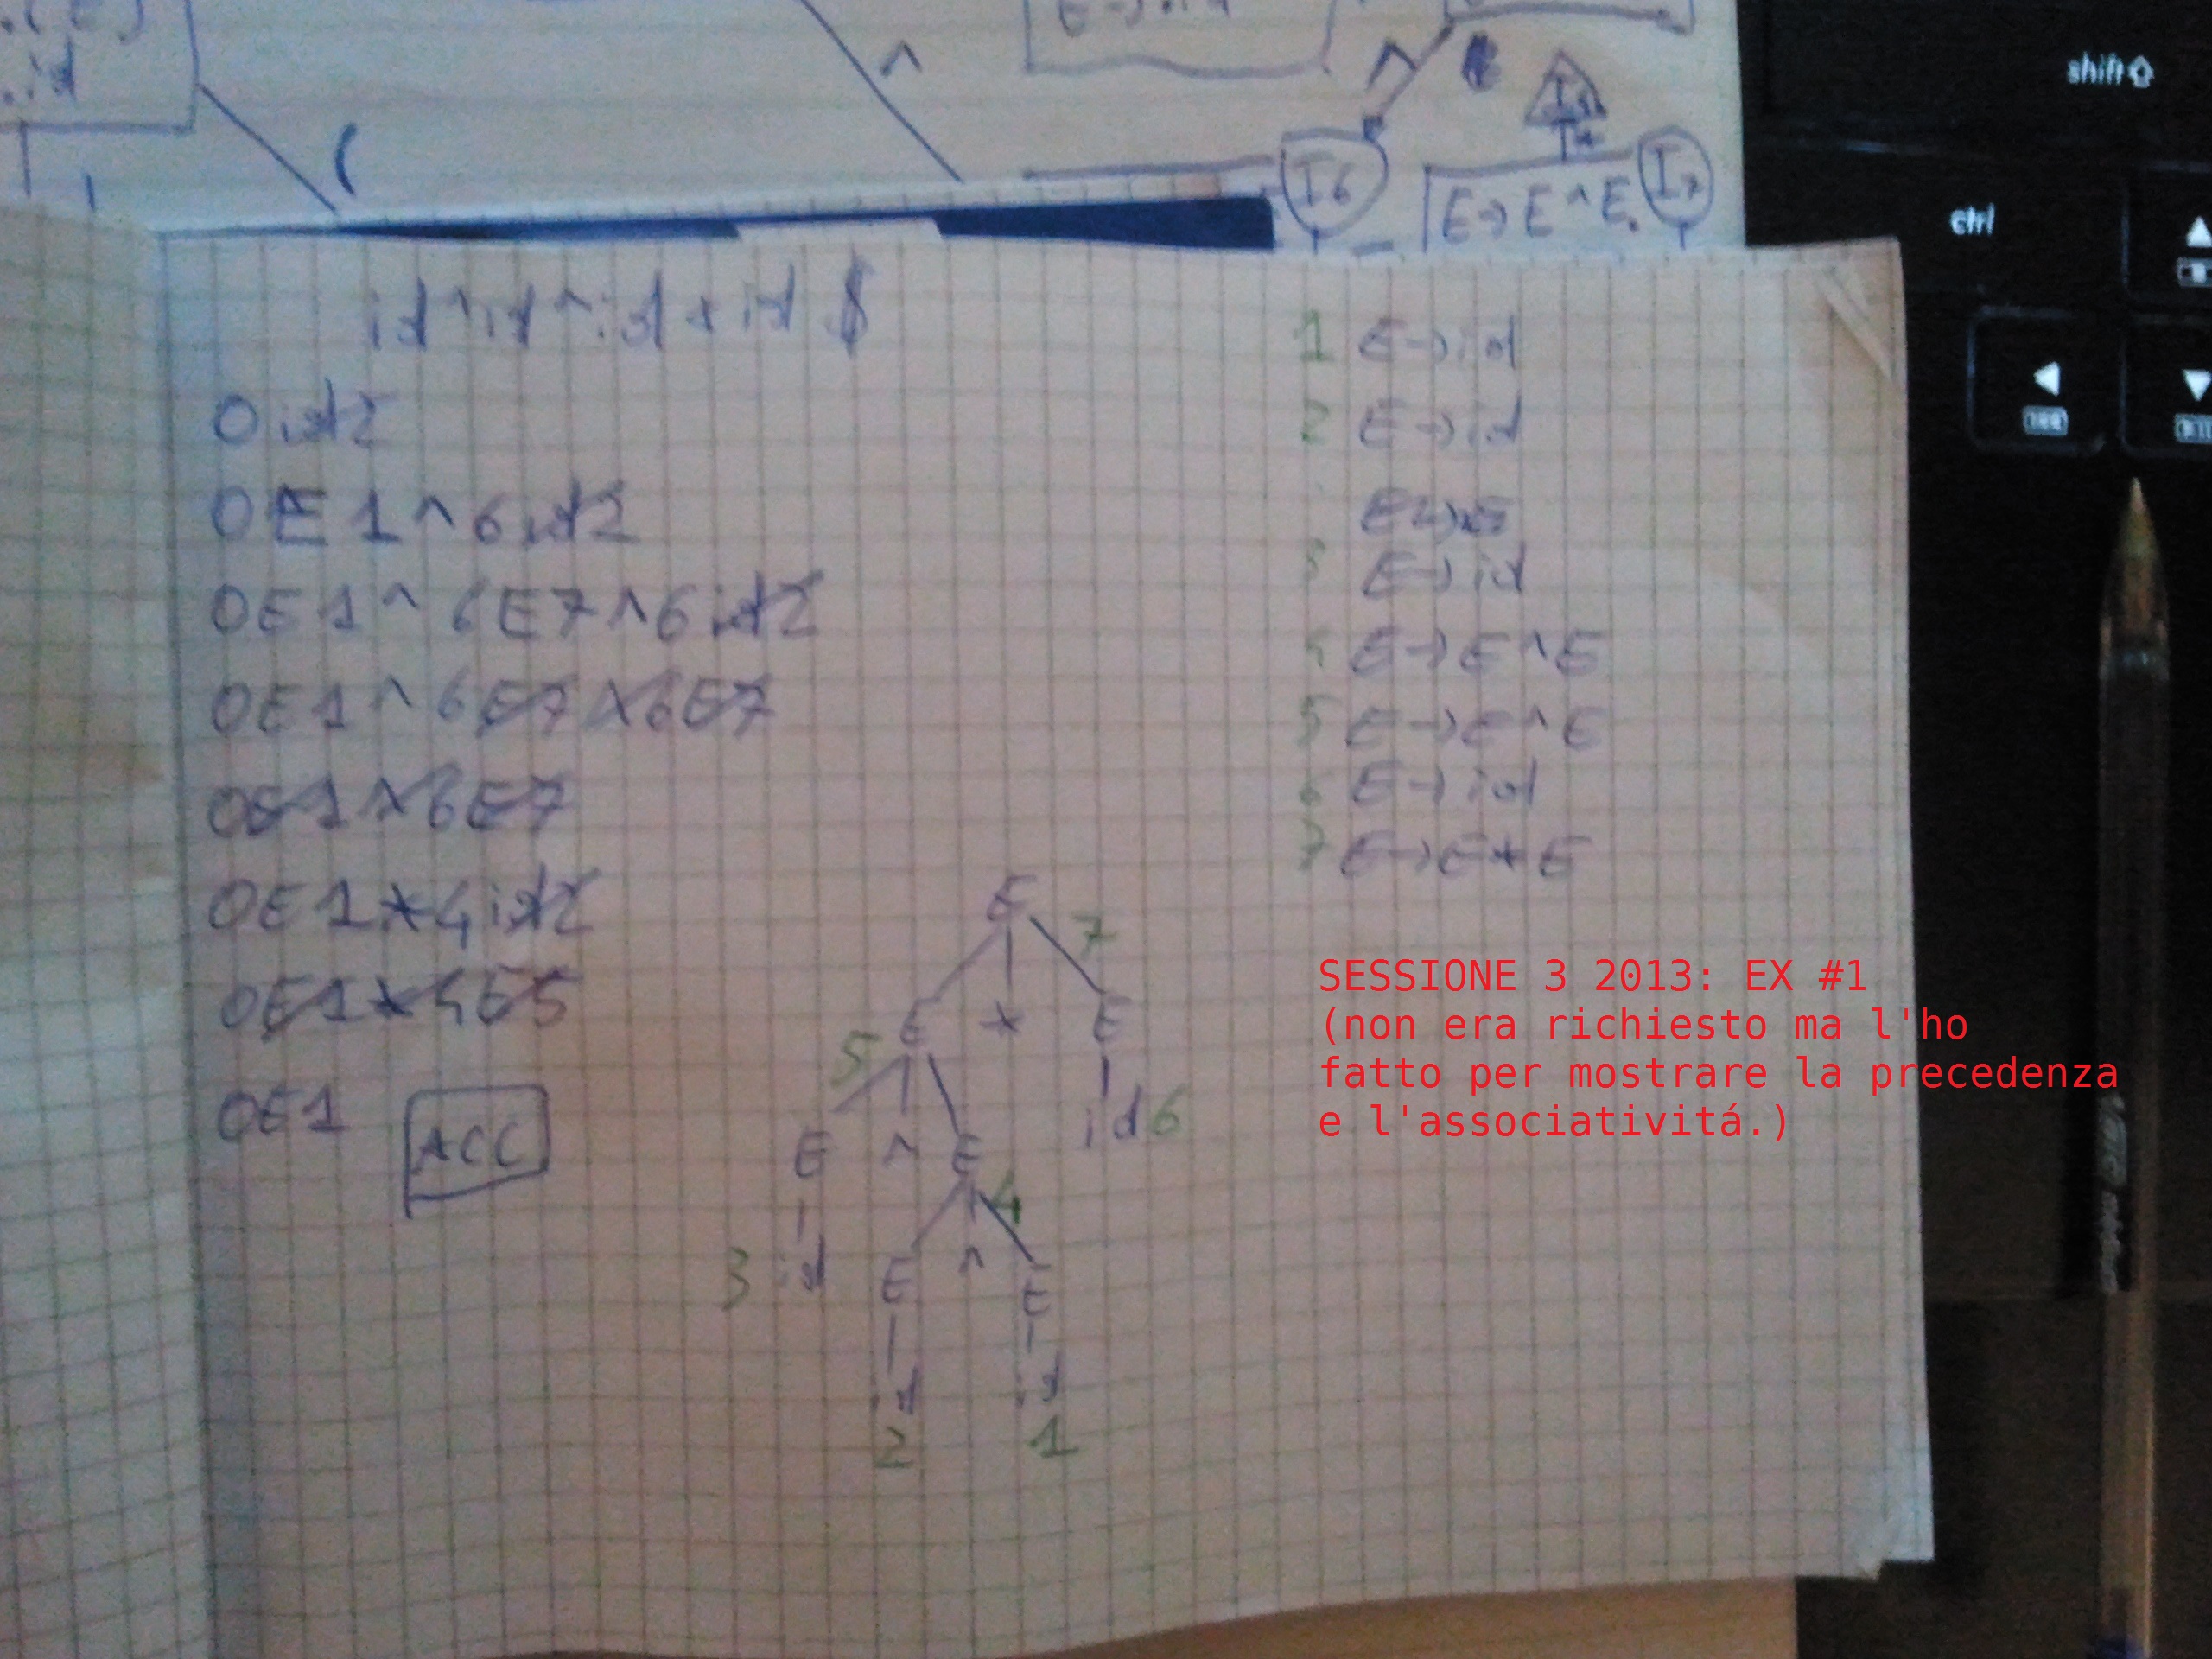 .(E)
.id
(
^
E→.id
^
I6
E→E^E.
I7
shift
ctrl
id^id^id*id $
0id2
0E1^6id2
0E1^6E7^6id2
0E1^6E7^6E7
0E1^6E7
0E1*4id2
0E1*4E5
0E1
ACC
1 E→id
2 E→id
3 E→id
4 E→E^E
5 E→E^E
6 E→id
7 E→E*E
E
7
E * E
5
id 6
E ^ E
4
3 id
E ^ E
id id
2 1
SESSIONE 3 2013: EX #1
(non era richiesto ma l'ho
fatto per mostrare la precedenza
e l'associativitá.)